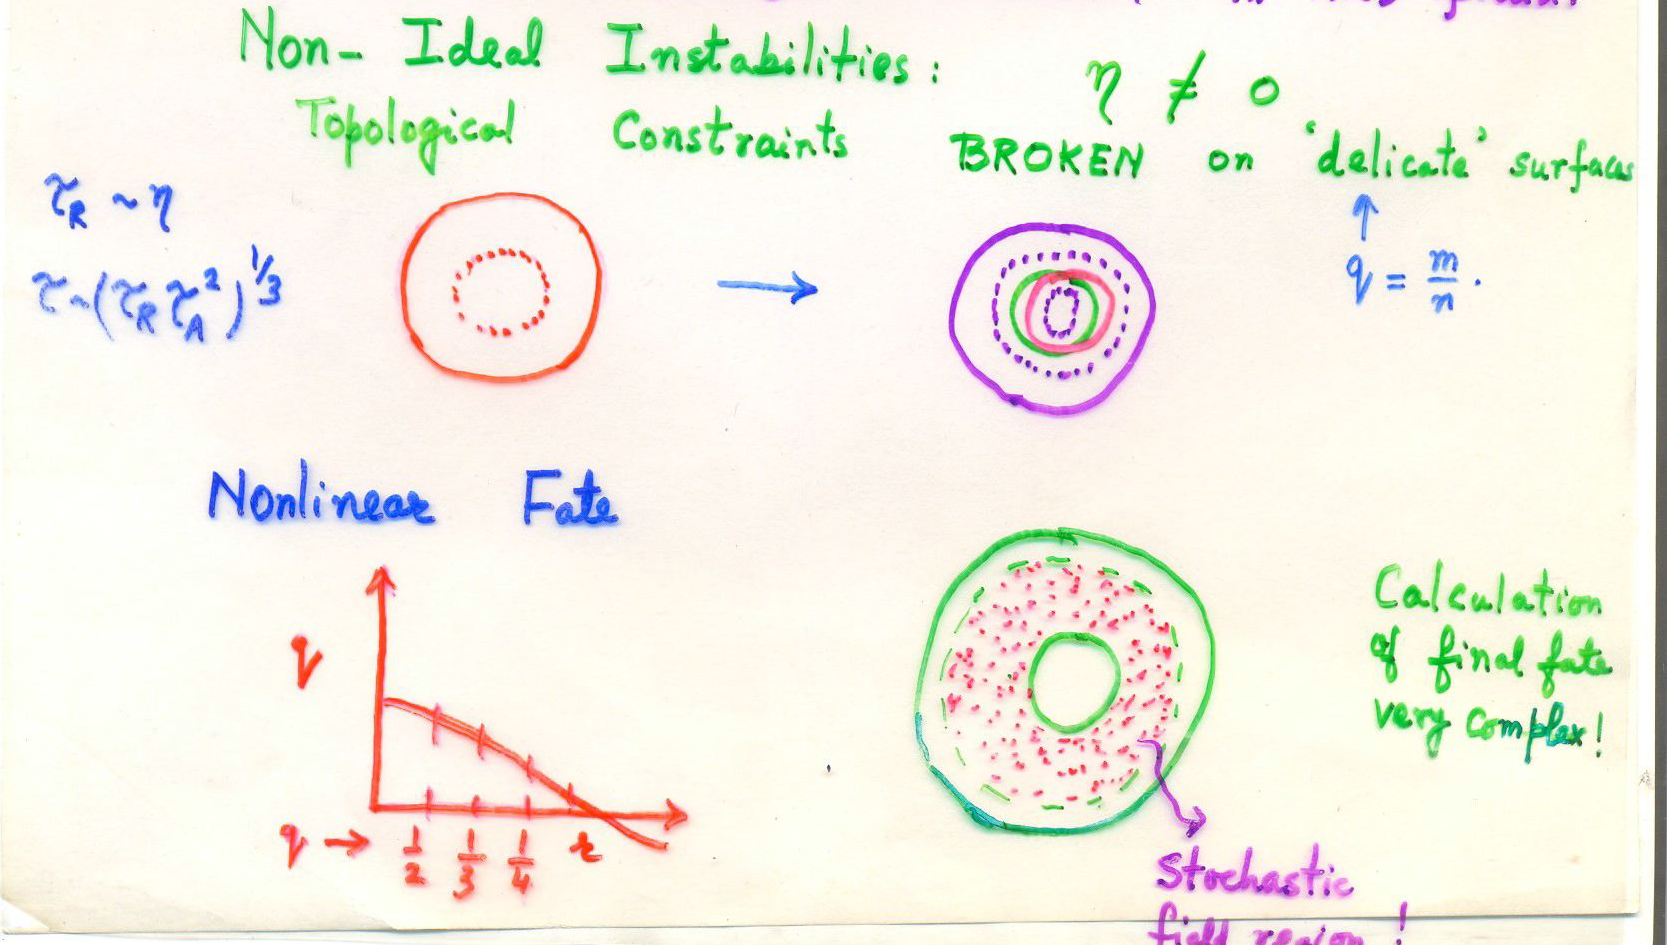 Non- Ideal Instabilities : η ≠ 0
Topological Constraints BROKEN on 'delicate' surfaces
τ_R ~ η
τ ~ (τ_R τ_A²)^1/3
q = m/n .
Nonlinear Fate
Calculation
of final fate
very complex!
q
q → 1/2 1/3 1/4 r
Stochastic
field region !